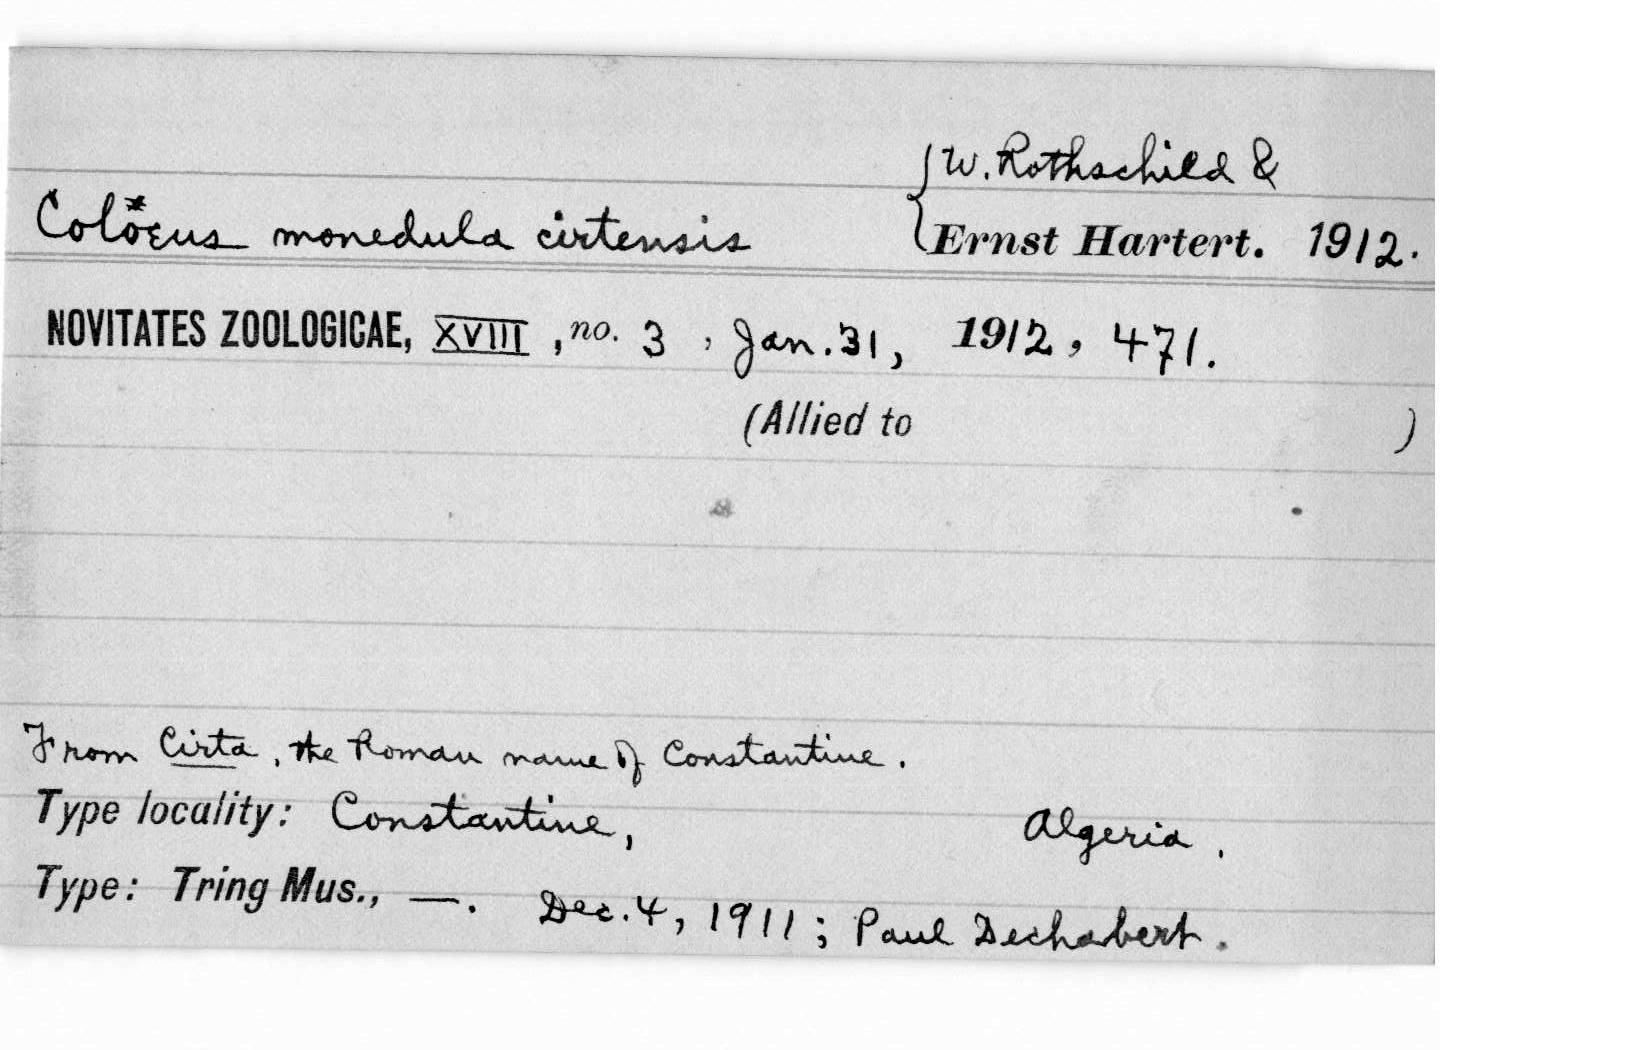 {W. Rothschild &
Colöeus monedula cirtensis {Ernst Hartert. 1912.
NOVITATES ZOOLOGICAE, XVIII, no. 3, Jan. 31, 1912, 471.
(Allied to )
From Cirta, the Roman name of Constantine.
Type locality: Constantine, Algeria.
Type: Tring Mus., —. Dec. 4, 1911; Paul Dechambert.